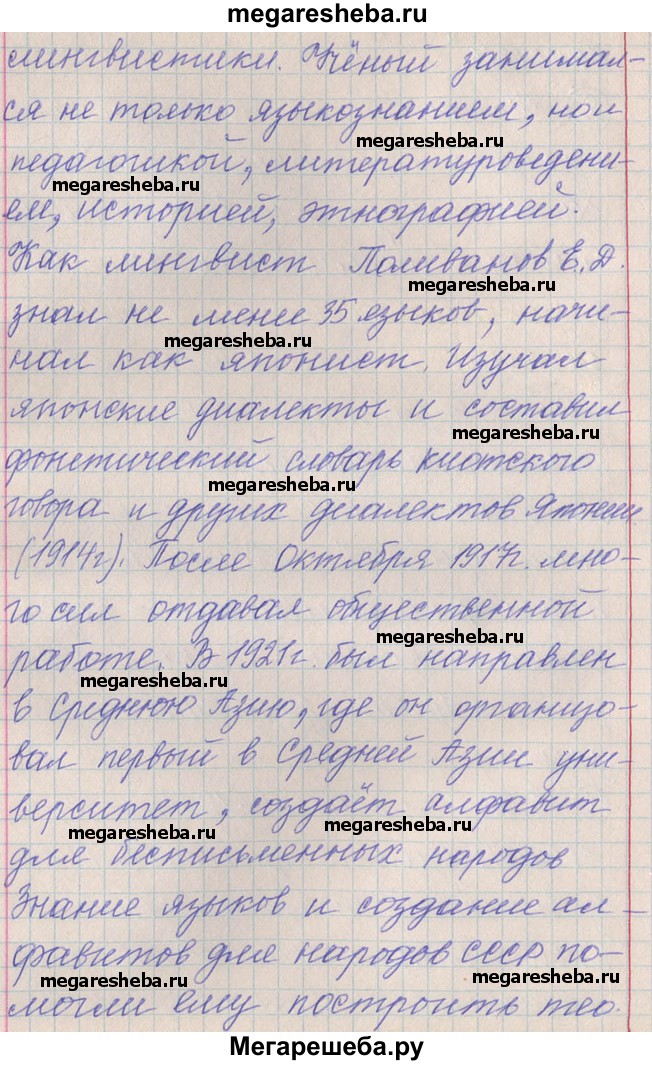 megaresheba.ru
лингвистики. Учёный занимал-
ся не только языкознанием, но и
megaresheba.ru
педагогикой, литературоведени-
megaresheba.ru
ем, историей, этнографией.
Как лингвист Поливанов Е.Д.
megaresheba.ru
знал не менее 35 языков, начи-
megaresheba.ru
нал как японист. Изучал
японские диалекты и составил
megaresheba.ru
фонетический словарь киотского
megaresheba.ru
говора и других диалектов Японии
(1914г). После Октября 1917г. мно-
го сил отдавал общественной
megaresheba.ru
работе. В 1921г. был направлен
megaresheba.ru
в Среднюю Азию, где он организо-
вал первый в Средней Азии уни-
верситет, создаёт алфавит
megaresheba.ru megaresheba.ru
для бесписьменных народов
Знание языков и создание ал-
фавитов для народов СССР по-
megaresheba.ru megaresheba.ru
могли ему построить тео.
Мегарешеба.ру